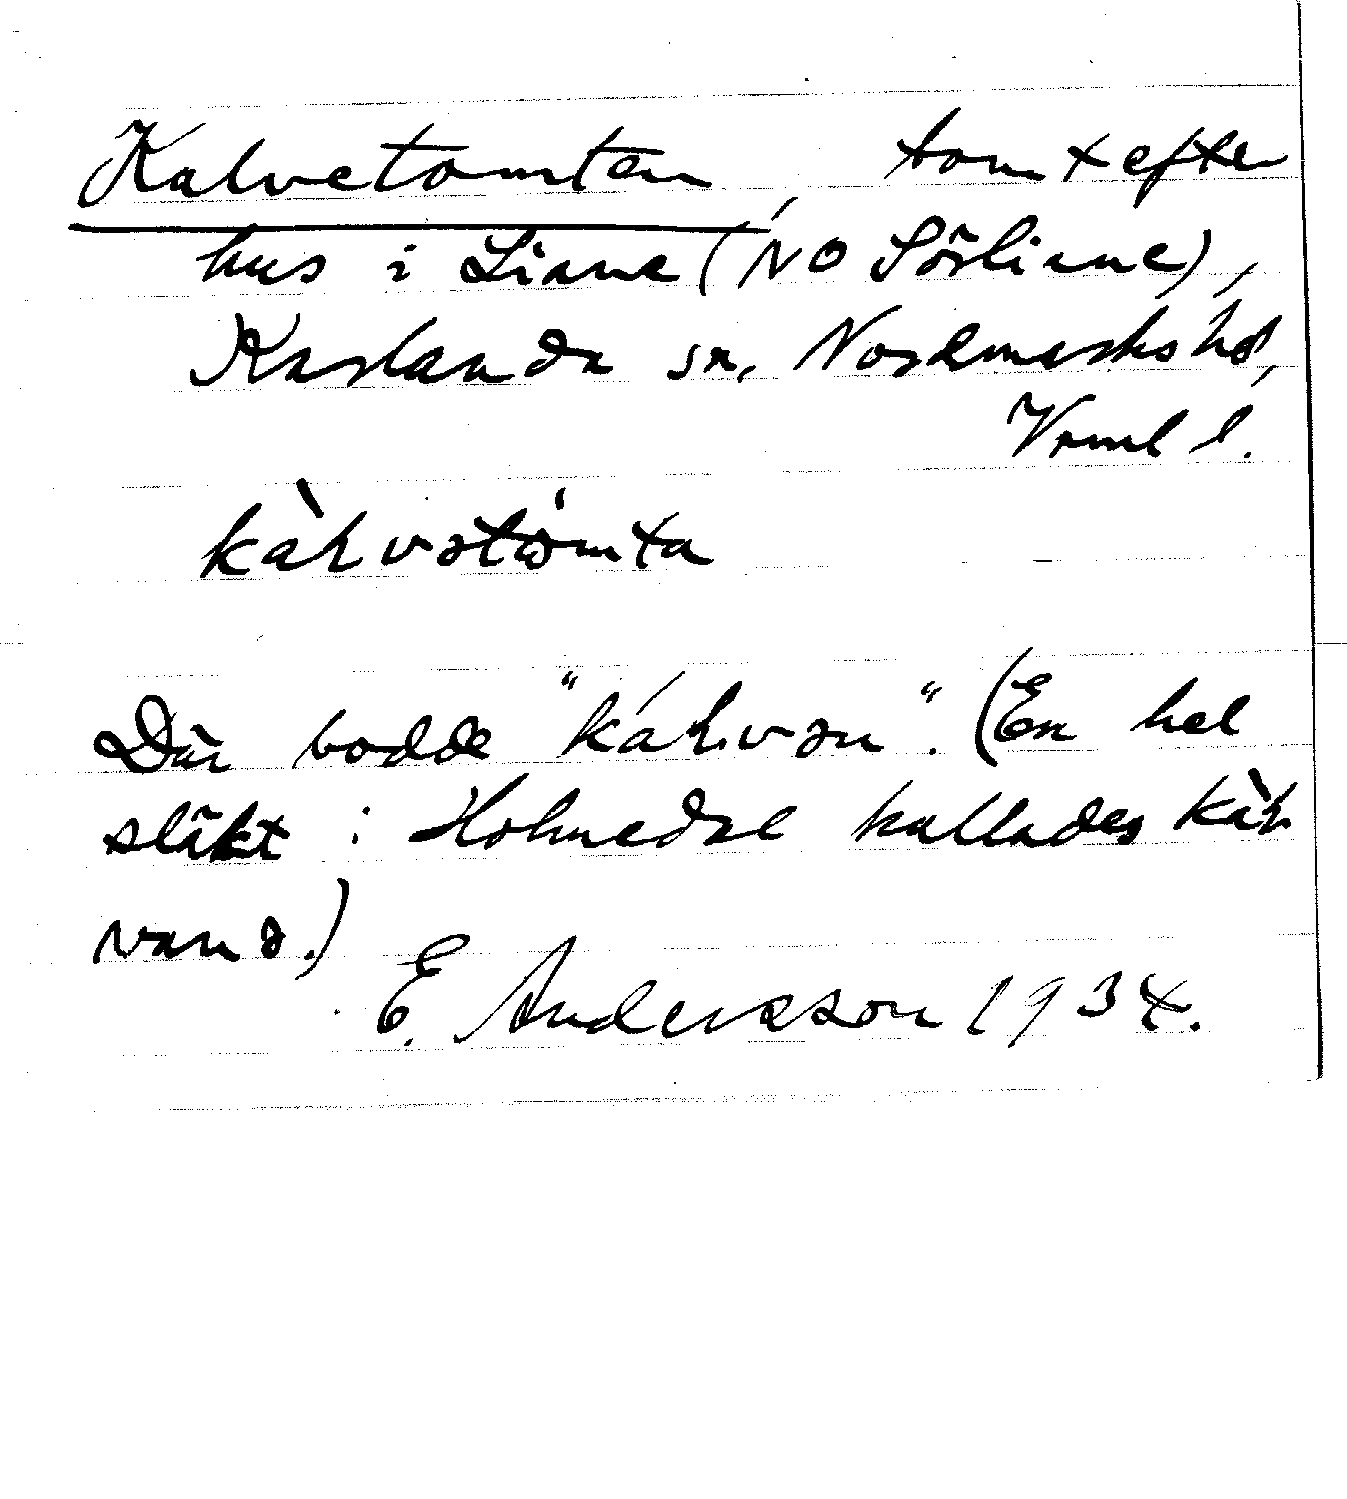 Kalvetomten, tomt efter
hus i Liane (NO Sörliane),
Karlanda sn, Nordmarks hd,
Vrml l.
kàɽvətɷ̀mta
Där bodde "káɽvən". (En hel
släkt i Holmedal kallades kàɽ
vanə.)
E. Andersson 1934.